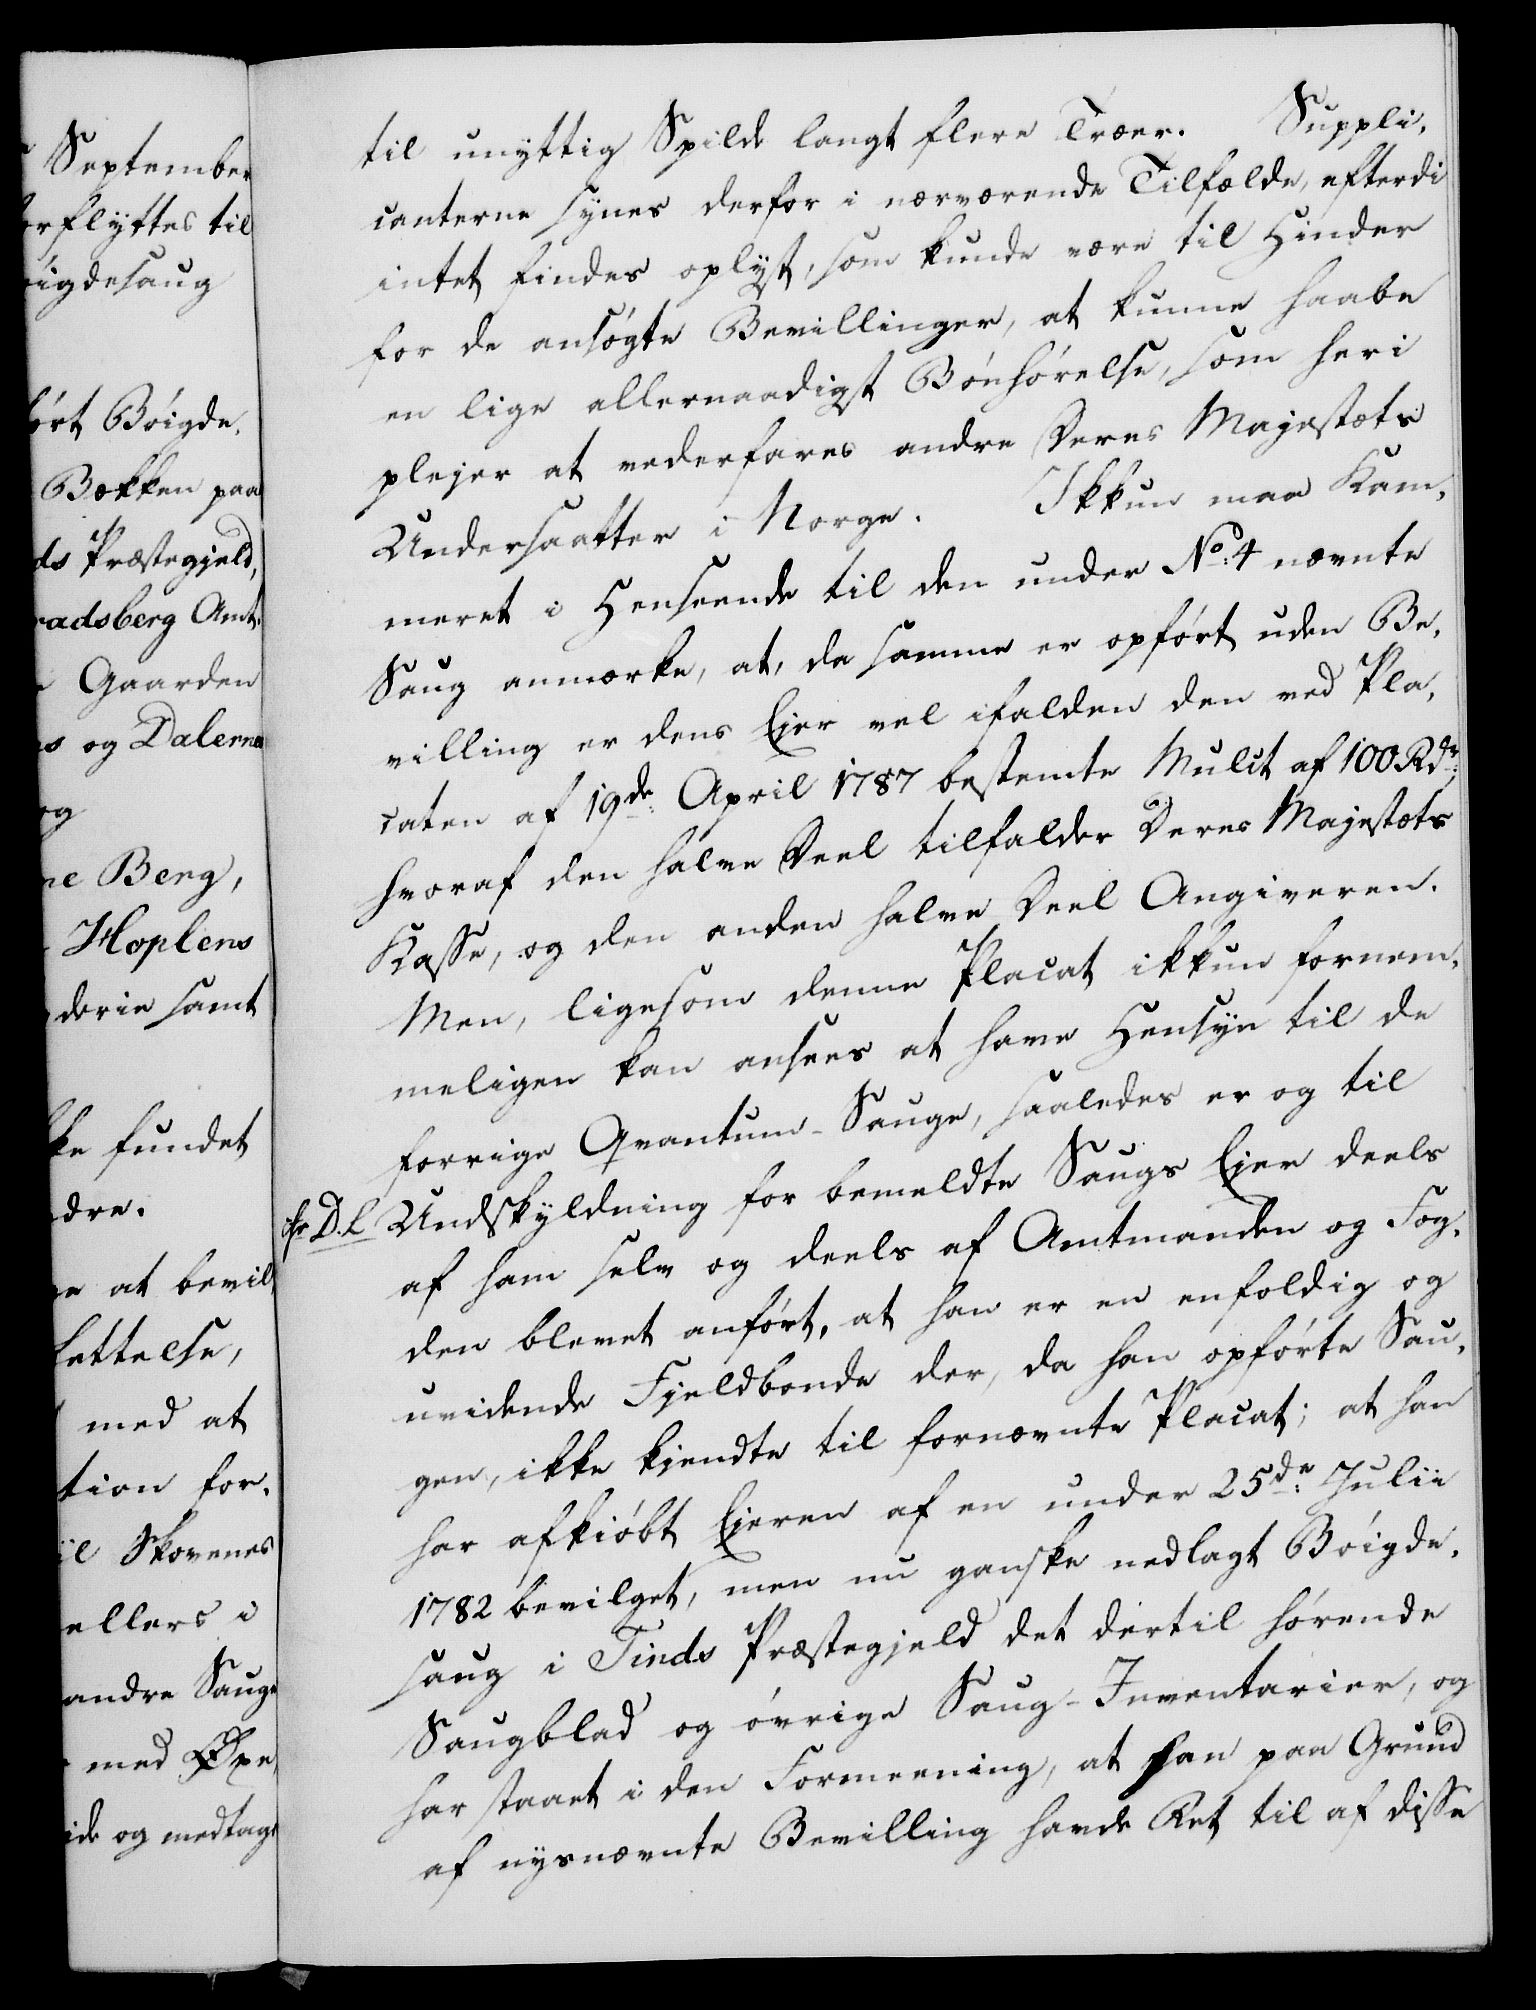 September
rflyttes til
igdesaug
ört Böigde,
Bækken paa
ds Præstegjeld,
radsberg Amt.
Gaarden
og Dalerne
og
ne Berg,
Hoplens
derie samt
ke fundet
dre.
at bevil,
lettelse,
med at
tion for,
il Skovenes
ellers i
andre Sauge
med Øxe,
ide og medtage
til unyttig Spilde langt flere Træer. Suppli,
canterne synes derfor i nærværende Tilfælde, efterdi
intet findes oplyst, som kunde være til Hinder
for de ansøgte Bevillinger, at kunne haabe
en lige allernaadigst Bönhörelse, som heri
plejer at vederfares andre Deres Majestæts
Undersaatter i Norge. Ikkun maa Kam,
meret i Henseende til den under No. 4 nævnte
Saug anmærke, at, da samme er opfört uden Be,
villing er dens Ejer vel ifalden den ved Pla,
caten af 19de April 1787 bestemte Mulct af 100 Rdr.
hvoraf den halve Deel tilfalder Deres Majestæts
Kasse, og den anden halve Deel Angiveren.
Men, ligesom denne Placat ikkun fornem,
meligen kan ansees at have Hensyn til de
forrige Qvantum-Sauge, saaledes er og til
D. L. Undskyldning for bemeldte Saugs Ejer deels
af ham selv og deels af Amtmanden og Fog,
den blevet anfört, at han er en enfoldig og
uvidende Fjeldbonde der, da han opförte Sau,
gen, ikke kjendte til fornævnte Placat; at han
har afkiöbt Ejeren af en under 25de Julii
1782 bevilget, men nu ganske nedlagt Böigde,
saug i Tinds Præstegjeld det dertil hörende
Saugblad og övrige Saug-Inventarier, og
har staaet i den Formeening, at han paa Grund
af nysnævnte Bevilling havde Ret til af disse